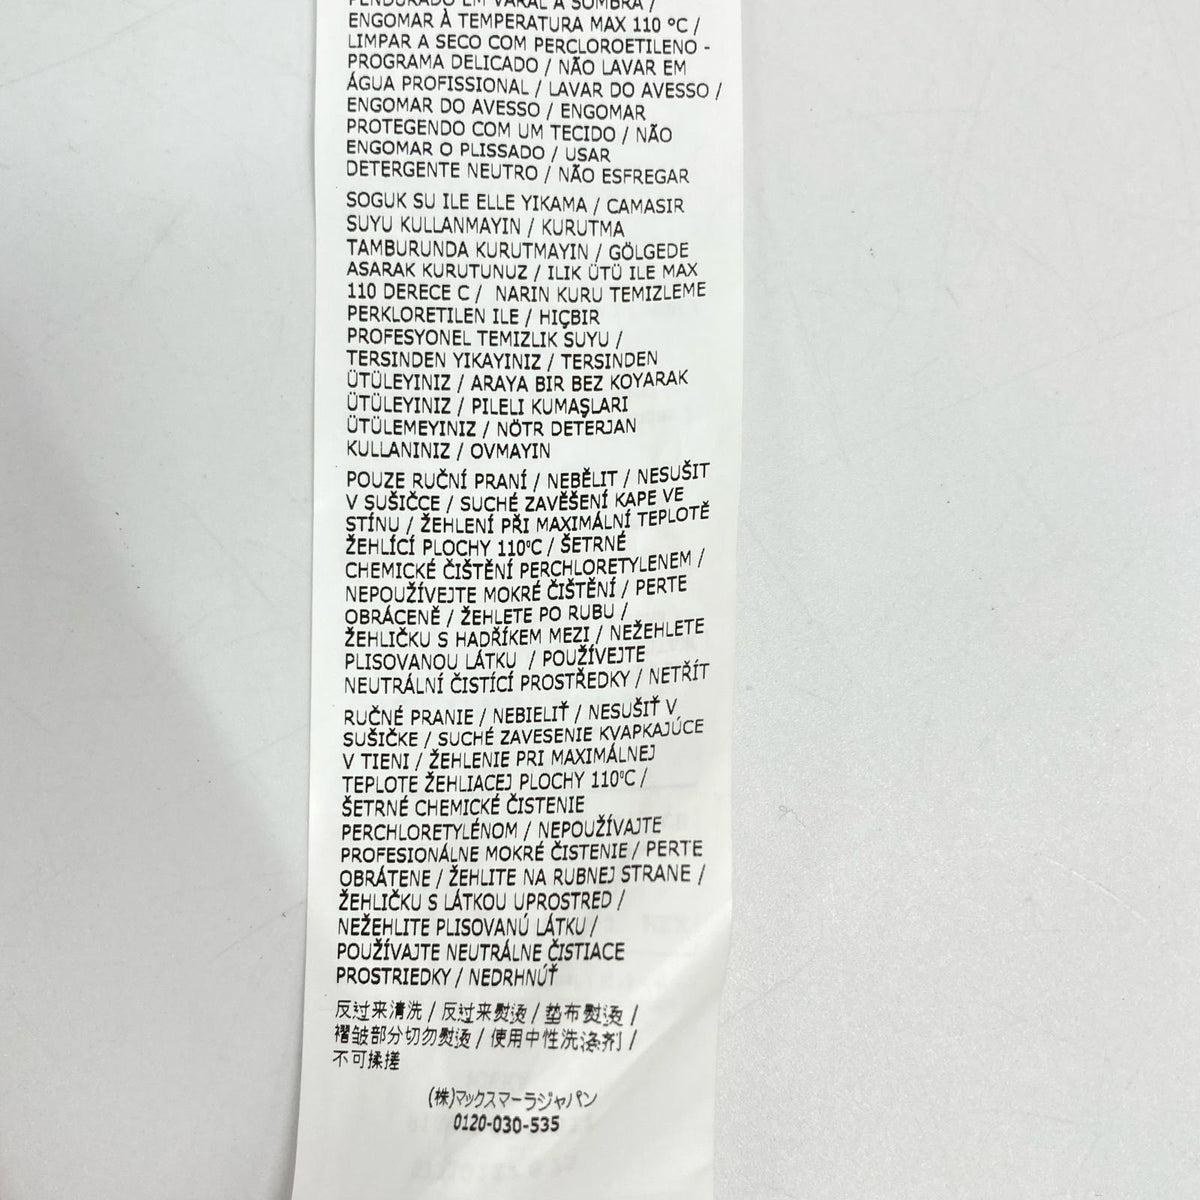 PENDURADO EM VARAL À SOMBRA /
ENGOMAR À TEMPERATURA MAX 110 °C /
LIMPAR A SECO COM PERCLOROETILENO -
PROGRAMA DELICADO / NÃO LAVAR EM
ÁGUA PROFISSIONAL / LAVAR DO AVESSO /
ENGOMAR DO AVESSO / ENGOMAR
PROTEGENDO COM UM TECIDO / NÃO
ENGOMAR O PLISSADO / USAR
DETERGENTE NEUTRO / NÃO ESFREGAR
SOGUK SU ILE ELLE YIKAMA / CAMASIR
SUYU KULLANMAYIN / KURUTMA
TAMBURUNDA KURUTMAYIN / GÖLGEDE
ASARAK KURUTUNUZ / ILIK ÜTÜ ILE MAX
110 DERECE C / NARIN KURU TEMIZLEME
PERKLORETILEN ILE / HIÇBIR
PROFESYONEL TEMIZLIK SUYU /
TERSINDEN YIKAYINIZ / TERSINDEN
ÜTÜLEYINIZ / ARAYA BIR BEZ KOYARAK
ÜTÜLEYINIZ / PILELI KUMAŞLARI
ÜTÜLEMEYINIZ / NÖTR DETERJAN
KULLANINIZ / OVMAYIN
POUZE RUČNÍ PRANÍ / NEBĚLIT / NESUŠIT
V SUŠIČCE / SUCHÉ ZAVĚŠENÍ KAPE VE
STÍNU / ŽEHLENÍ PŘI MAXIMÁLNÍ TEPLOTĚ
ŽEHLÍCÍ PLOCHY 110°C / ŠETRNÉ
CHEMICKÉ ČIŠTĚNÍ PERCHLORETYLENEM /
NEPOUŽÍVEJTE MOKRÉ ČIŠTĚNÍ / PERTE
OBRÁCENĚ / ŽEHLETE PO RUBU /
ŽEHLIČKU S HADŘÍKEM MEZI / NEŽEHLETE
PLISOVANOU LÁTKU / POUŽÍVEJTE
NEUTRÁLNÍ ČISTÍCÍ PROSTŘEDKY / NETŘÍT
RUČNÉ PRANIE / NEBIELIŤ / NESUŠIŤ V
SUŠIČKE / SUCHÉ ZAVESENIE KVAPKAJÚCE
V TIENI / ŽEHLENIE PRI MAXIMÁLNEJ
TEPLOTE ŽEHLIACEJ PLOCHY 110°C /
ŠETRNÉ CHEMICKÉ ČISTENIE
PERCHLORETYLÉNOM / NEPOUŽÍVAJTE
PROFESIONÁLNE MOKRÉ ČISTENIE / PERTE
OBRÁTENE / ŽEHLITE NA RUBNEJ STRANE /
ŽEHLIČKU S LÁTKOU UPROSTRED /
NEŽEHLITE PLISOVANÚ LÁTKU /
POUŽÍVAJTE NEUTRÁLNE ČISTIACE
PROSTRIEDKY / NEDRHNÚŤ
反过来清洗 / 反过来熨烫 / 垫布熨烫 /
褶皱部分切勿熨烫 / 使用中性洗涤剂 /
不可揉搓
(株)マックスマーラジャパン
0120-030-535